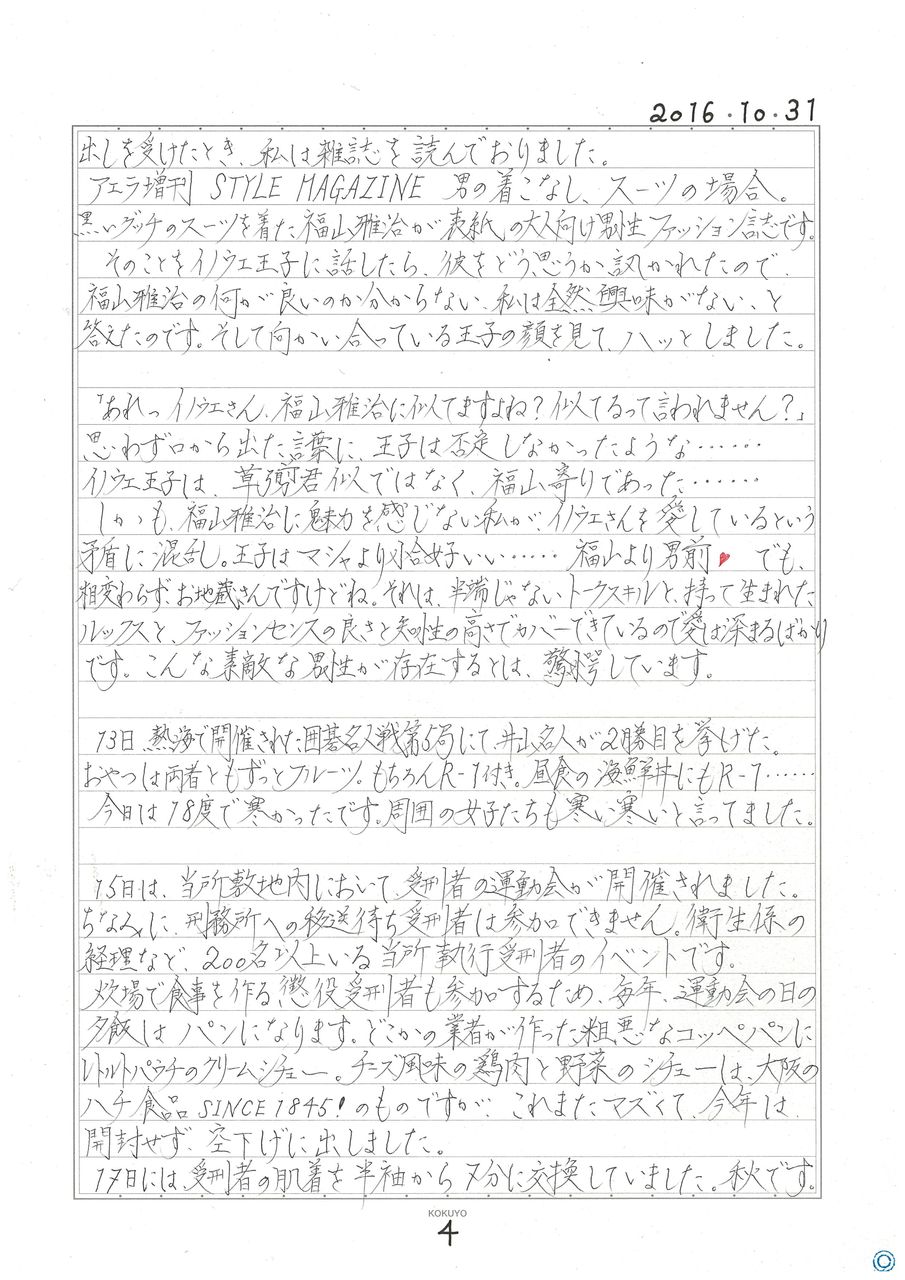 2016.10.31
出しを受けたとき、私は雑誌を読んでおりました。
アエラ増刊 STYLE MAGAZINE 男の着こなし、スーツの場合。
黒いグッチのスーツを着た福山雅治が表紙の大人向け男性ファッション誌です。
そのことをイノウエ王子に話したら、彼をどう思うか訊かれたので、
福山雅治の何が良いのか分からない、私は全然興味がない、と
答えたのです。そして向かい合っている王子の顔を見て、ハッとしました。
「あれっイノウエさん、福山雅治に似てますよね?似てるって言われません?」
思わず口から出た言葉に、王子は否定しなかったような……
イノウエ王子は、草彅君似ではなく、福山寄りであった……
しかも、福山雅治に魅力を感じない私が、イノウエさんを愛しているという
矛盾に混乱し。王子はマシャより恰好いい…… 福山より男前♥ でも、
相変わらず、お地蔵さんですけどね。それは、半端じゃないトークスキルと、持って生まれた
ルックスと、ファッションセンスの良さと知性の高さでカバーできているので愛は深まるばかり
です。こんな素敵な男性が存在するとは、驚愕しています。
13日、熱海で開催された囲碁名人戦第5局にて、井山名人が2勝目を挙げた。
おやつは両者ともずっとフルーツ。もちろんR-1付き。昼食の海鮮丼にもR-1……
今日は18度で寒かったです。周囲の女子たちも寒い寒いと言ってました。
15日は、当所敷地内において、受刑者の運動会が開催されました。
ちなみに、刑務所への移送待ち受刑者は参加できません。衛生係の
経理など、200名以上いる当所執行受刑者のイベントです。
炊場で食事を作る懲役受刑者も参加するため、毎年、運動会の日の
夕飯はパンになります。どこかの業者が作った粗悪なコッペパンに
レトルトパウチのクリームシチュー。チーズ風味の鶏肉と野菜のシチューは、大阪の
ハチ食品SINCE1845!のものですが、これまたマズくて、今年は、
開封せず、空下げに出しました。
17日には、受刑者の肌着を半袖から7分に交換していました。秋です。
KOKUYO
4
©